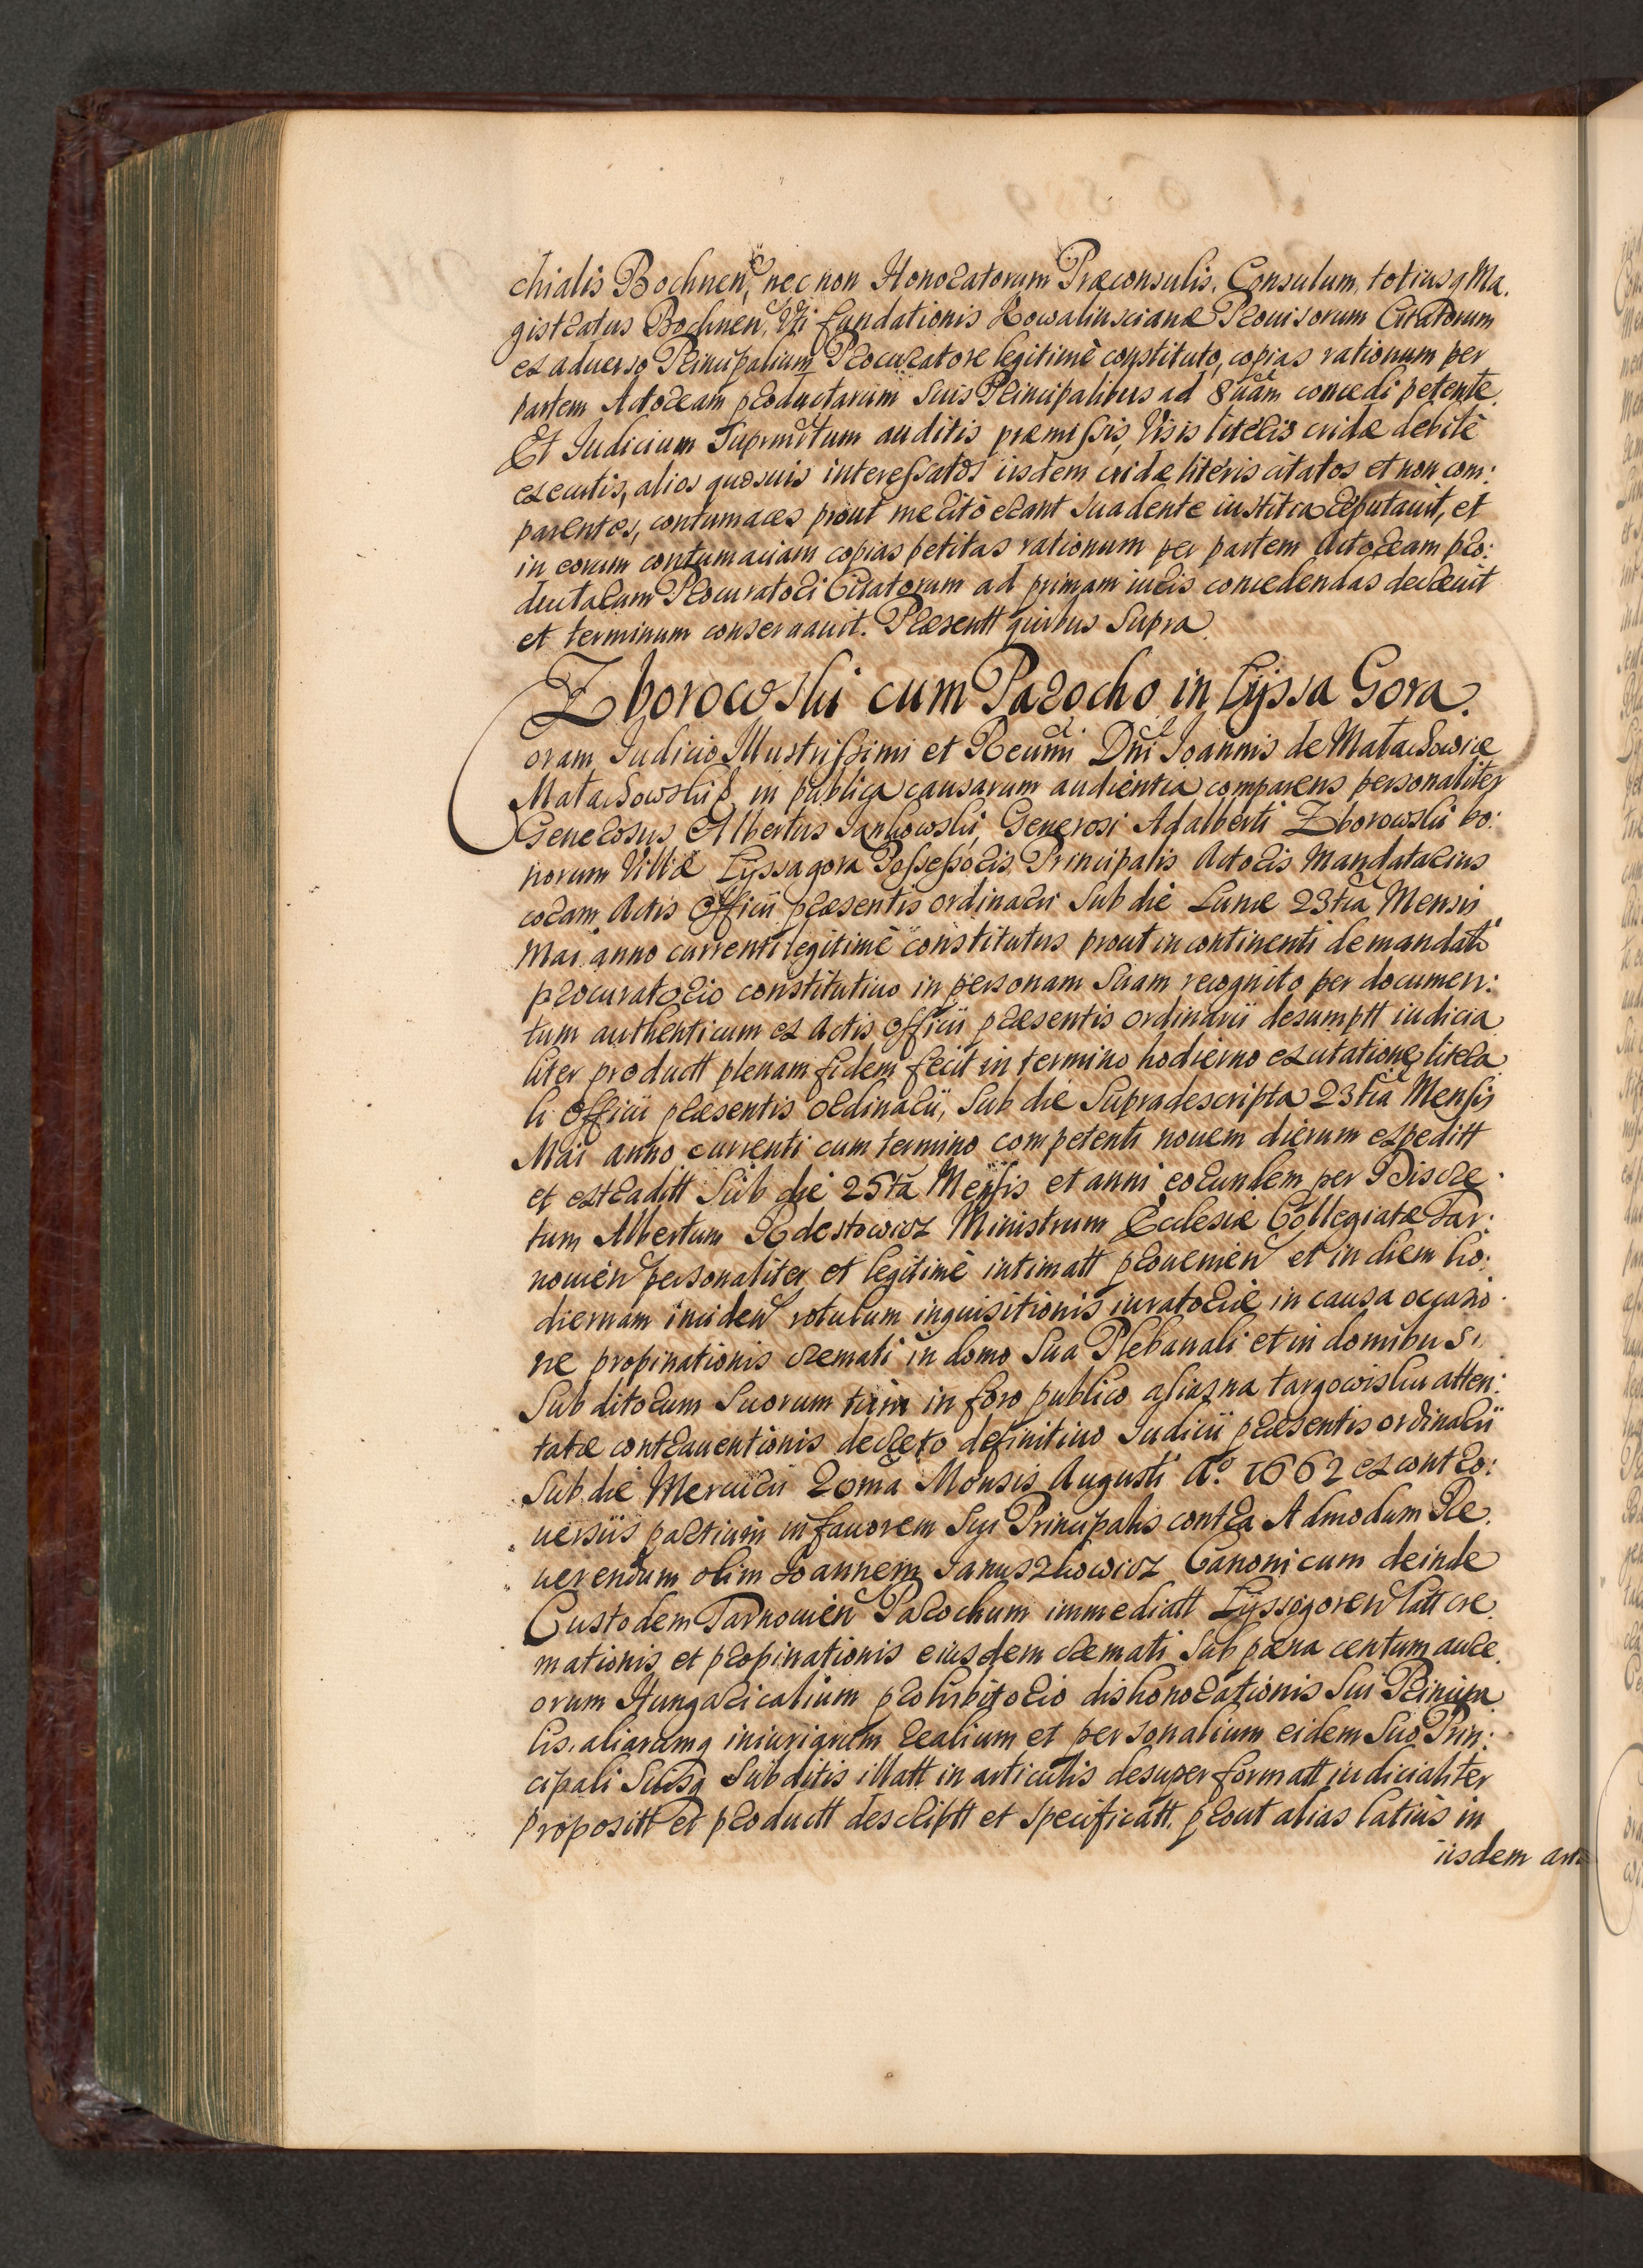 chialis Bochnen, nec non Honoratorum Præconsulis, Consulum, totiusq Ma.
gistratus Bochnen, Vti fundationis Kowaliusciana Prouisorum Citatorum
ex aduerso Principalium Procuratore legitimè constituto, copias rationum per
partem Actoream productarum suis Principalibus ad 8uam concedi petente.
Et Iudicium Suprmctum auditis præmissis, Visis literis cridæ debitè
executis, alios quosuis interessatos iisdem cridæ literis citatos et non com:
parentes, contumaces prout meritò erant suadente iustitia reputauit, et
in eorum contumaciam copias petitas rationum per partem Actoream pro:
ductarum Procuratori Citatorum ad primam iuris concedendas decreuit
et terminum conseruauit. Præsentt quibus supra.
Zborowski cum Parocho in Lyssa Gora.
Coram Iudicio Illustrissimi et Reumi Dni Ioannis de Małachowice
Małachowski in publica causarum audientia comparens personaliter
Generosus Albertus Jankowski, Generosi Adalberti Zborowski bo:
norum Villæ Lyssagora Possessoris, Principalis Actoris Mandatarius
coram Actis Officii præsentis ordinarii sub die Lunæ 23tia Mensis
Maii anno currenti legitimè constitutus prout in continenti de mandato
procuratorio constitutiuo in personam suam recognito per documen:
tum authenticum ex Actis Officii præsentis ordinarii desumptt iudicia
liter productt plenam fidem fecit in termino hodierno ex citatione litera
li Officii præsentis ordinarii, sub die supradescripta 23tia Mensis
Maii anno currenti cum termino competenti nouem dierum expeditt
et extraditt sub die 25ta Mensis et anni eorundem per Discre
tum Albertum Ministrum Ecclesiæ Collegiatæ Tar:
nouien personaliter et legitimè intimatt prouenien et in diem ho:
diernam inciden rotulum inquisitionis iuratoriæ in causa occasio
ne propinationis cremati in domo sua Plebanali et in domibus
Subditorum suorum tum in foro publico alias na targowisku atten:
tatæ contrauentionis decreto definitiuo Iudicii præsentis ordinarii
sub die Mercurii Mensis Augusti Ao. 1662 ex contro:
uersiis partium in fauorem sui Principalis contra Admodum Re
uerendum olim Ioannem Januszkowicz Canonicum deinde
Custodem Tarnouien Parochum immediatt Lyssogoren latt cre
mationis et propinationis eiusdem cremati sub pœna centum aure
orum Hungaricalium prohibitorio dishonorationis sui Principa
lis, aliarumq iniuriarum realium et personalium eidem suo Prin:
cipali suisq Subditis illatt in articulis desuper formatt iudicialiter
propositt et productt descriptt et specificatt, prout alias latius in
iisdem art